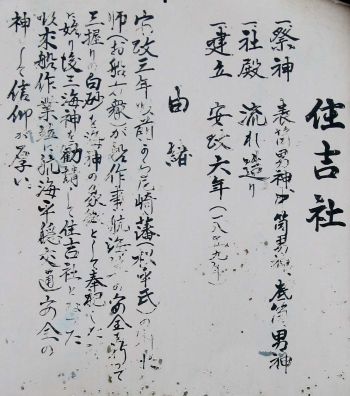 住吉社
一、祭神 表筒男神、中筒男神、底筒男神
一、社殿 流れ造り
一、建立 安政六年(一八五九年)
由緒
安政三年以前より尼崎藩(松平氏)の
師(お船が教が船作事航海の安全を祈って
三握りの白砂を海神の象徴として奉祀した
に始り後三海神を勧請して住吉社となった
以来船作業並に航海平穏交通安全の
神として信仰が厚い